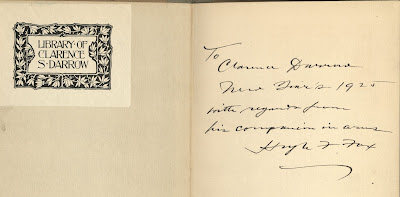 LIBRARY·OF
CLARENCE
S·DARROW
To
Clarence Darrow
New Year's 1925
with regards from
his companion in arms
Hugh F Fox